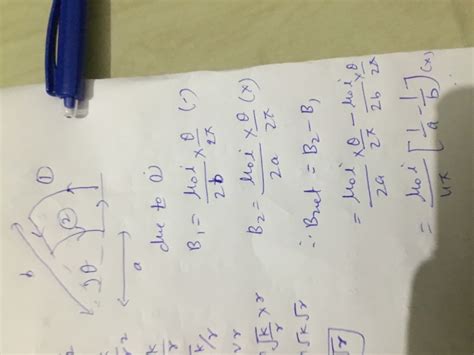 ①
②
b
θ
a
due to
B₁ = μ₀i/2b × θ/2π (·)
B₂ = μ₀i/2a × θ/2π (x)
∴ Bnet = B₂ - B₁
= μ₀i/2a × θ/2π - μ₀i/2b × θ/2π
= μ₀i/4π [1/a - 1/b] (x)
k/r
√k/r × r
= √k √r
√r